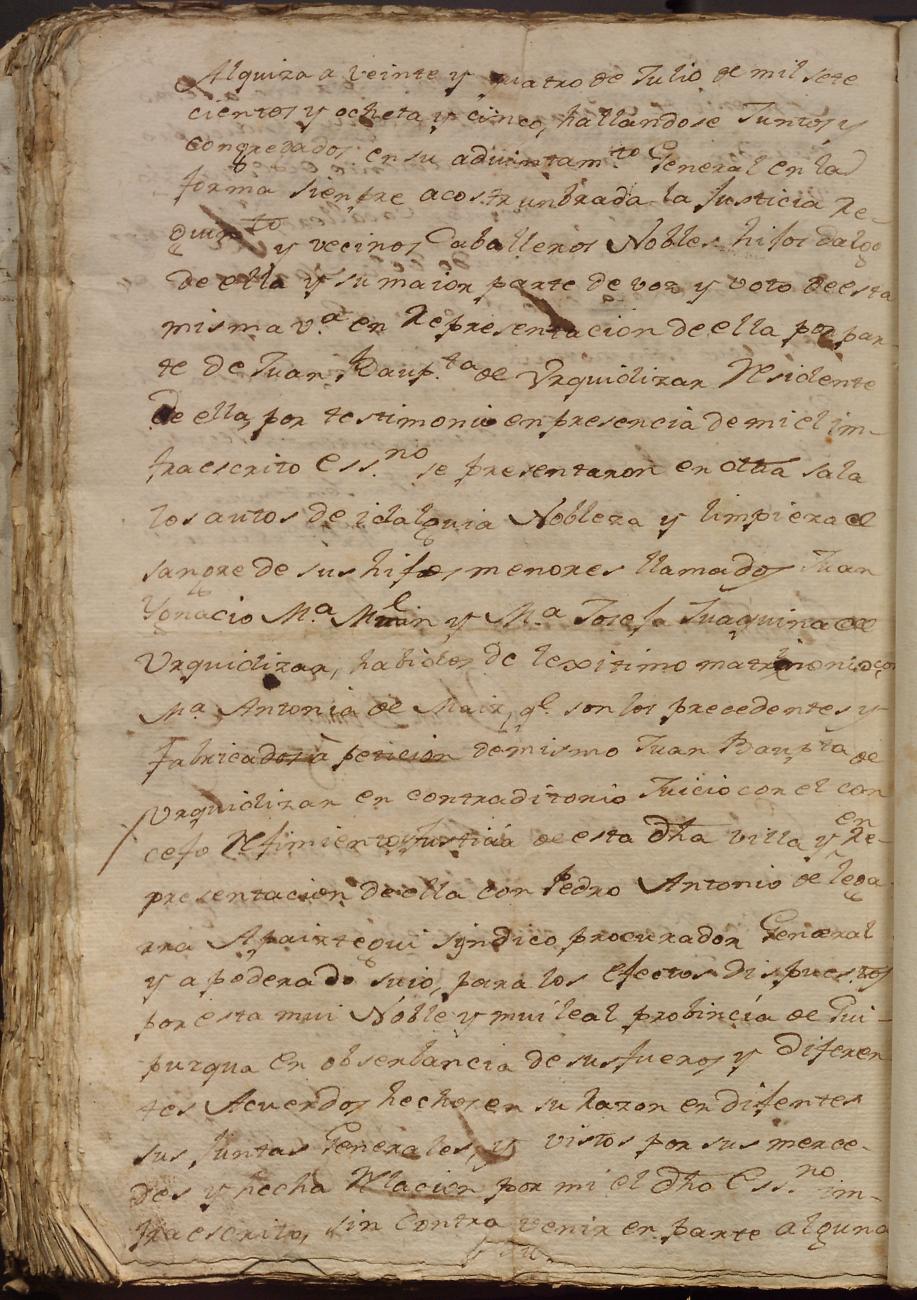 Alquiza a veinte y quatro de Julio de mil sete
cientos y ocheta y cinco, hallandose Juntos y
congregados en su aduintam.to General en la
forma sienpre acostunbrada la Justicia Re-
y vecinos Caballeros Nobles hijos dalgo
de ella y su maior parte de voz y voto de esta
misma v.a en Representacion de ella por par-
te de Juan Baup.ta de Urquidizar Residente
de ella, por testimonio en presencia de mi el im-
fraescrito ess.no se presentaron en otta sala
los autos de idalguia Nobleza y limpieza de
sangre de sus hifos menores llamados Juan
Ygnacio M.a y M.a Josefa Juaquina de
Urquidizar, habidos de lexitimo matrimonio con
M.a Antonia de Maiz, q.e son los precedentes y
fabricados à peticion demismo Juan Baup.ta de
Urquidizar en contraditorio Juicio con el con
en
cefo Refimiento Justicia de esta dha villa y Re-
presentacion de ella con Pedro Antonio de lega-
rra Apaiztegui syndico procurador General
y apoderado suio, para los efectos dispuestos
por esta mui Noble y mui leal probincia de Gui-
puzqua en obserbancia de sus fueros y diferen
tes Acuerdos hechos en su razon en difentes
sus Juntas Generales, y vistos por sus merce-
des y hecha Relacion por mi el dho Ess.no im-
fraescrito, sin contra venir en parte alguna